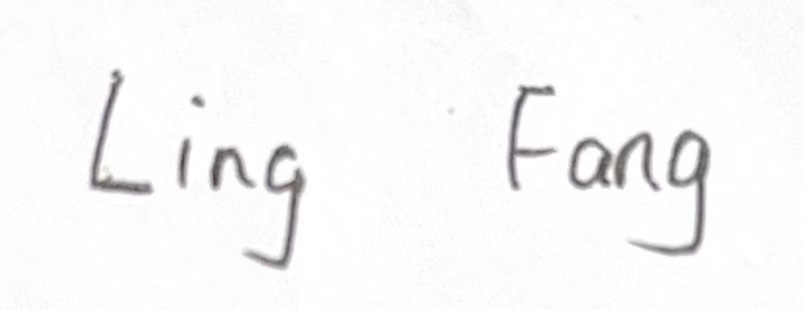 Ling Fang